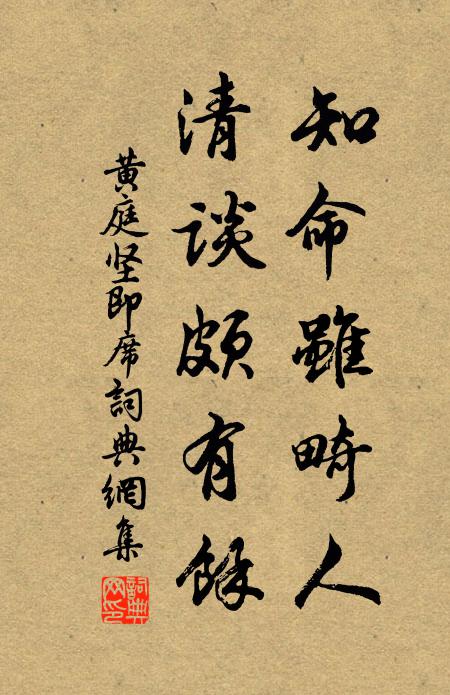 知命雖畸人
清談頗有餘
黄庭坚即席詞典網集
詞典網印